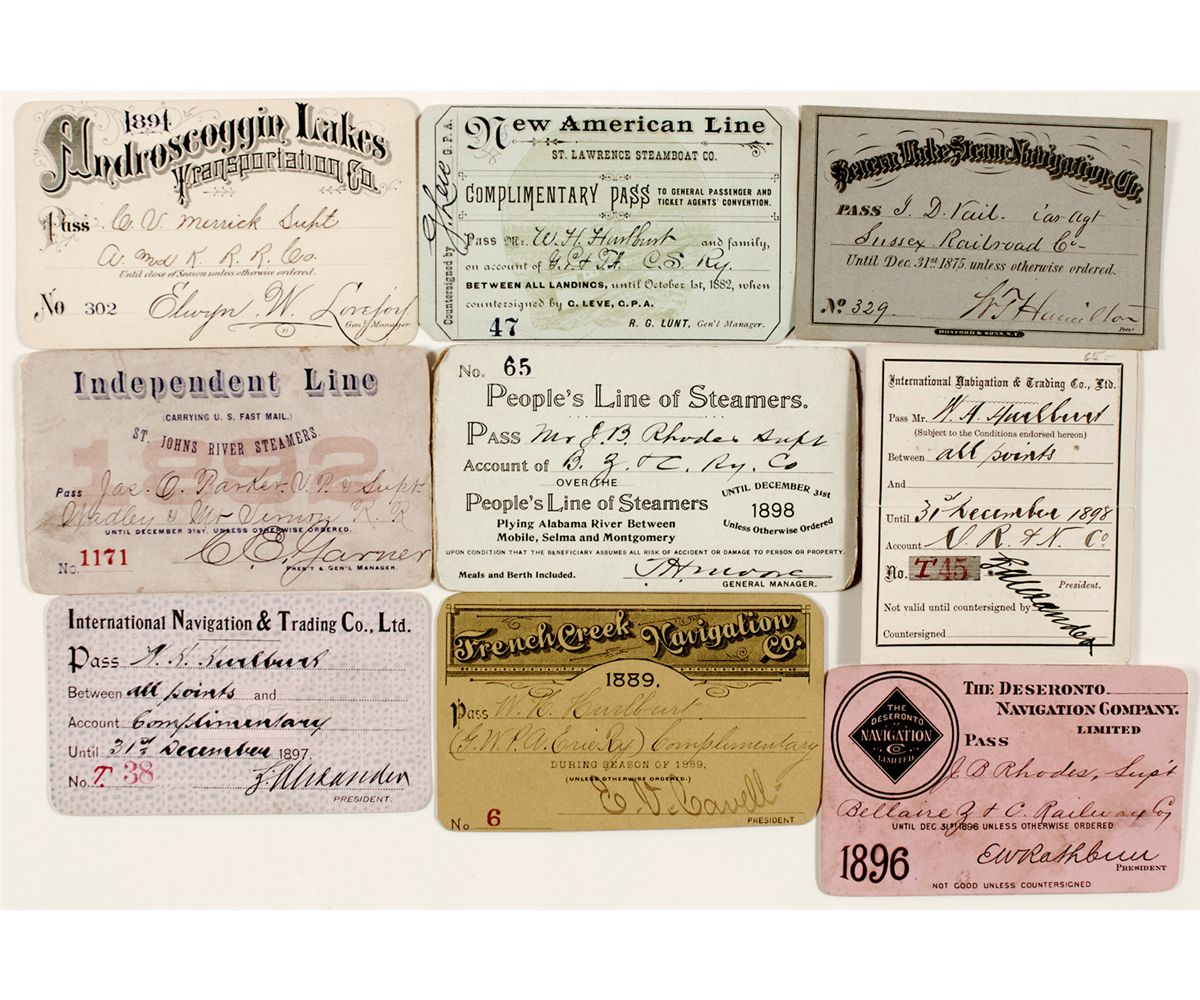 1891
Androscoggin Lakes
Transportation Co.
Pass C. V. Merrick Supt
A. and K. R. R. Co.
Until close of Season unless otherwise ordered.
No 302 Elwyn W. Lovejoy
Gen'l Manager.
New American Line
ST. LAWRENCE STEAMBOAT CO.
COMPLIMENTARY PASS TO GENERAL PASSENGER AND
TICKET AGENTS' CONVENTION.
Pass Mr. W. H. Hurlburt and family,
on account of G. P. & T. A. C. S. Ry.
BETWEEN ALL LANDINGS, until October 1st, 1882, when
countersigned by C. LEVE, G.P.A.
47 R. G. LUNT, Gen'l Manager.
Countersigned by C. Leve G. P. A.
Seneca Lake Steam Navigation Co,
PASS I. D. Vail. Car Agt
Sussex Railroad Co-
Until Dec. 31st. 1875. unless otherwise ordered.
No. 329. W. T. Hamilton
Prest
HOSFORD & SONS, N.Y.
Independent Line
(CARRYING U. S. FAST MAIL.)
ST. JOHNS RIVER STEAMERS.
1892
Pass Jas. O. Parker. V. P. & Supt
Wadley & Mt Vernon R. R
UNTIL DECEMBER 31ST. UNLESS OTHERWISE ORDERED.
No. 1171 C. E. Garner
PRES'T & GEN'L MANAGER.
No. 65
People's Line of Steamers.
PASS Mr J. B. Rhodes Supt
Account of B. Z. & C. Ry. Co
OVER THE
People's Line of Steamers
Plying Alabama River Between
Mobile, Selma and Montgomery
UNTIL DECEMBER 31st
1898
Unless Otherwise Ordered
UPON CONDITION THAT THE BENEFICIARY ASSUMES ALL RISK OF ACCIDENT OR DAMAGE TO PERSON OR PROPERTY.
Meals and Berth Included.
GENERAL MANAGER.
65-
International Navigation & Trading Co., Ltd.
Pass Mr. W. H. Hurlburt
(Subject to the Conditions endorsed hereon)
Between all points
And
Until 31st December 1898
Account O. R. & N. Co
No. T 45 F. Alexander
President.
Not valid until countersigned by
Countersigned
International Navigation & Trading Co., Ltd.
Pass W. H. Hurlburt
Between all points and
1897
Account Complimentary
Until 31st December 1897.
No. T 38 F. Alexander
PRESIDENT.
French Creek Navigation Co.
1889.
Pass W. H. Hurlburt.
(G. W. P. A. Erie Ry) Complimentary
DURING SEASON OF 1889,
(UNLESS OTHERWISE ORDERED.)
E. V. Cavell
No. 6 PRESIDENT
THE
DESERONTO
NAVIGATION
CO
LIMITED
THE DESERONTO
NAVIGATION COMPANY.
LIMITED
PASS
J. B Rhodes, Sup't
Bellaire Z & C. Railway Co,
UNTIL DEC 31ST 1896 UNLESS OTHERWISE ORDERED
1896 E W Rathbun
PRESIDENT
NOT GOOD UNLESS COUNTERSIGNED